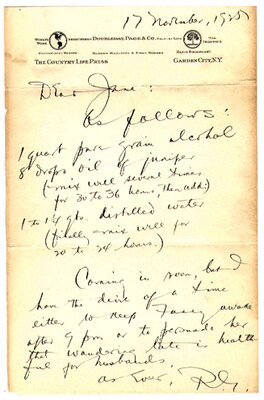 17 November, 1925
WORLD'S WORK
DOUBLEDAY, PAGE & CO.
COUNTRY LIFE
THE FRONTIER
GARDEN MAGAZINE & HOME BUILDER
RADIO BROADCAST
THE COUNTRY LIFE PRESS
GARDEN CITY, N.Y.
Dear Jane:
as follows:
1 quart pure grain alcohol
8 drops oil of juniper
(mix well several times
for 30 to 36 hours, then add:)
1 to 1¼ qts. distilled water
(finally mix well for
20 to 24 hours.)
Coming in soon, but I
have the divil of a time
either to keep awake
after 9 pm or to persuade her
that wandering late is health
ful for husbands.
as ever,